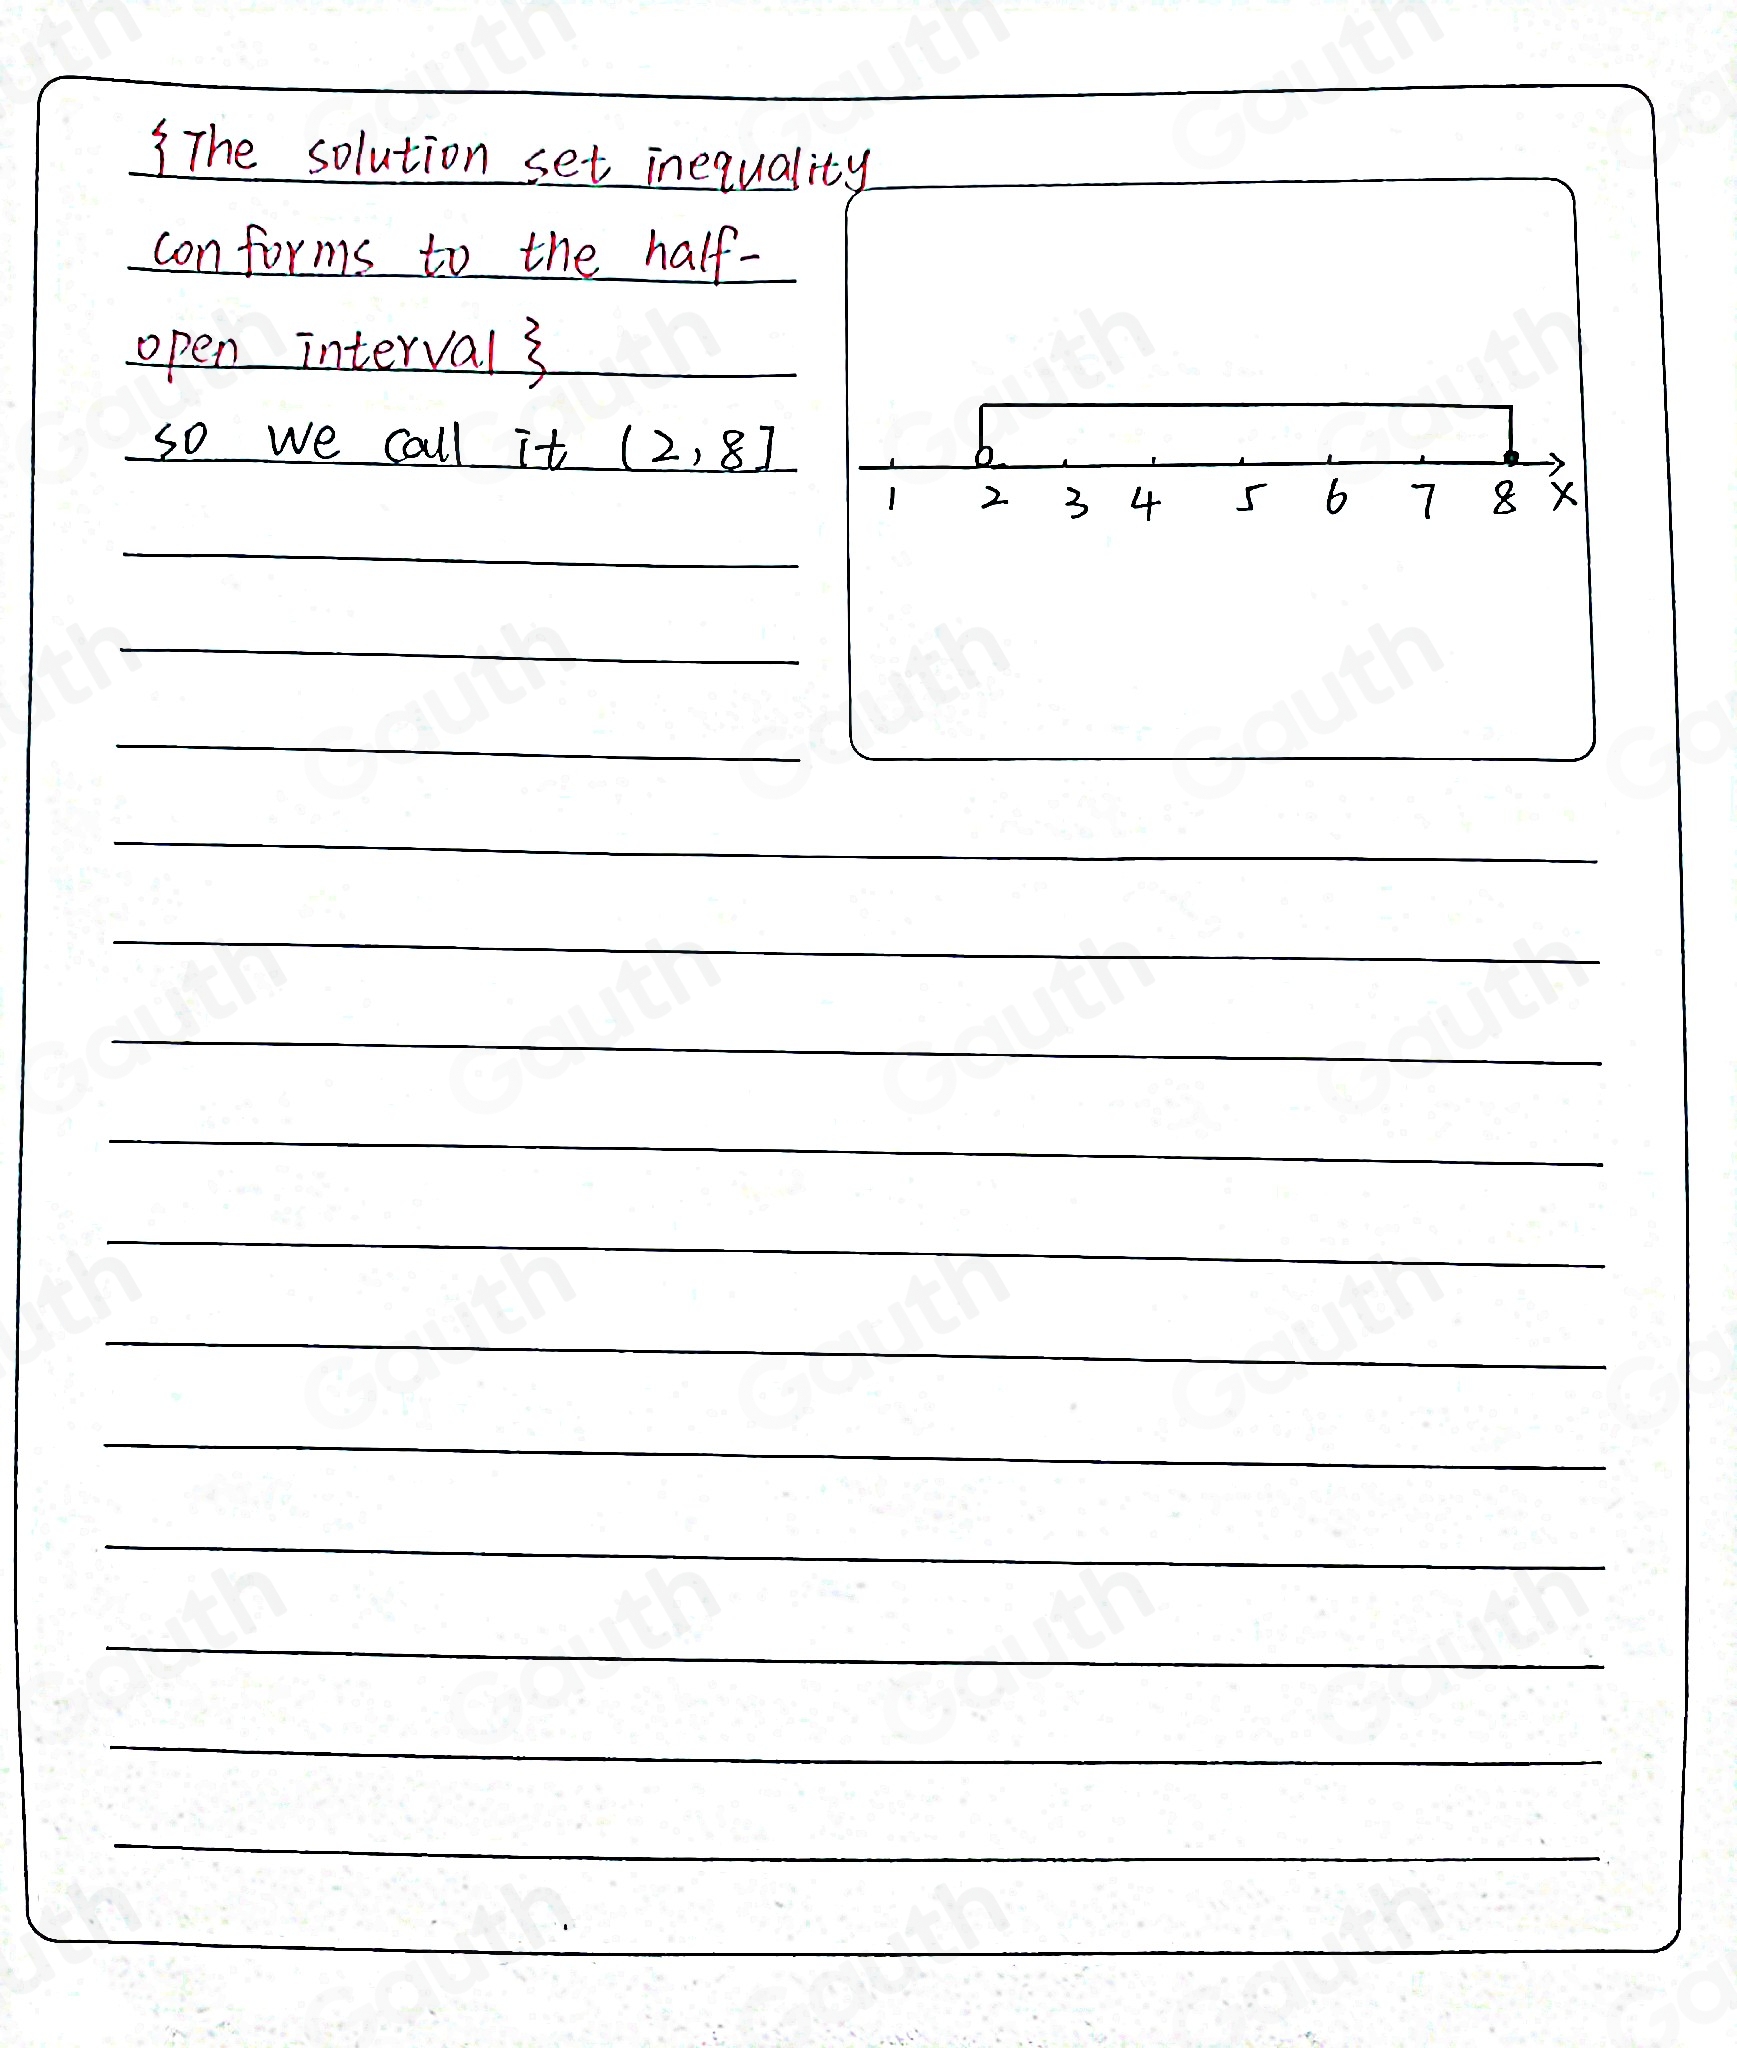 {The solution set inequality
conforms to the half-
open interval}
so we call it (2,8]
1 2 3 4 5 6 7 8 X
Gauth